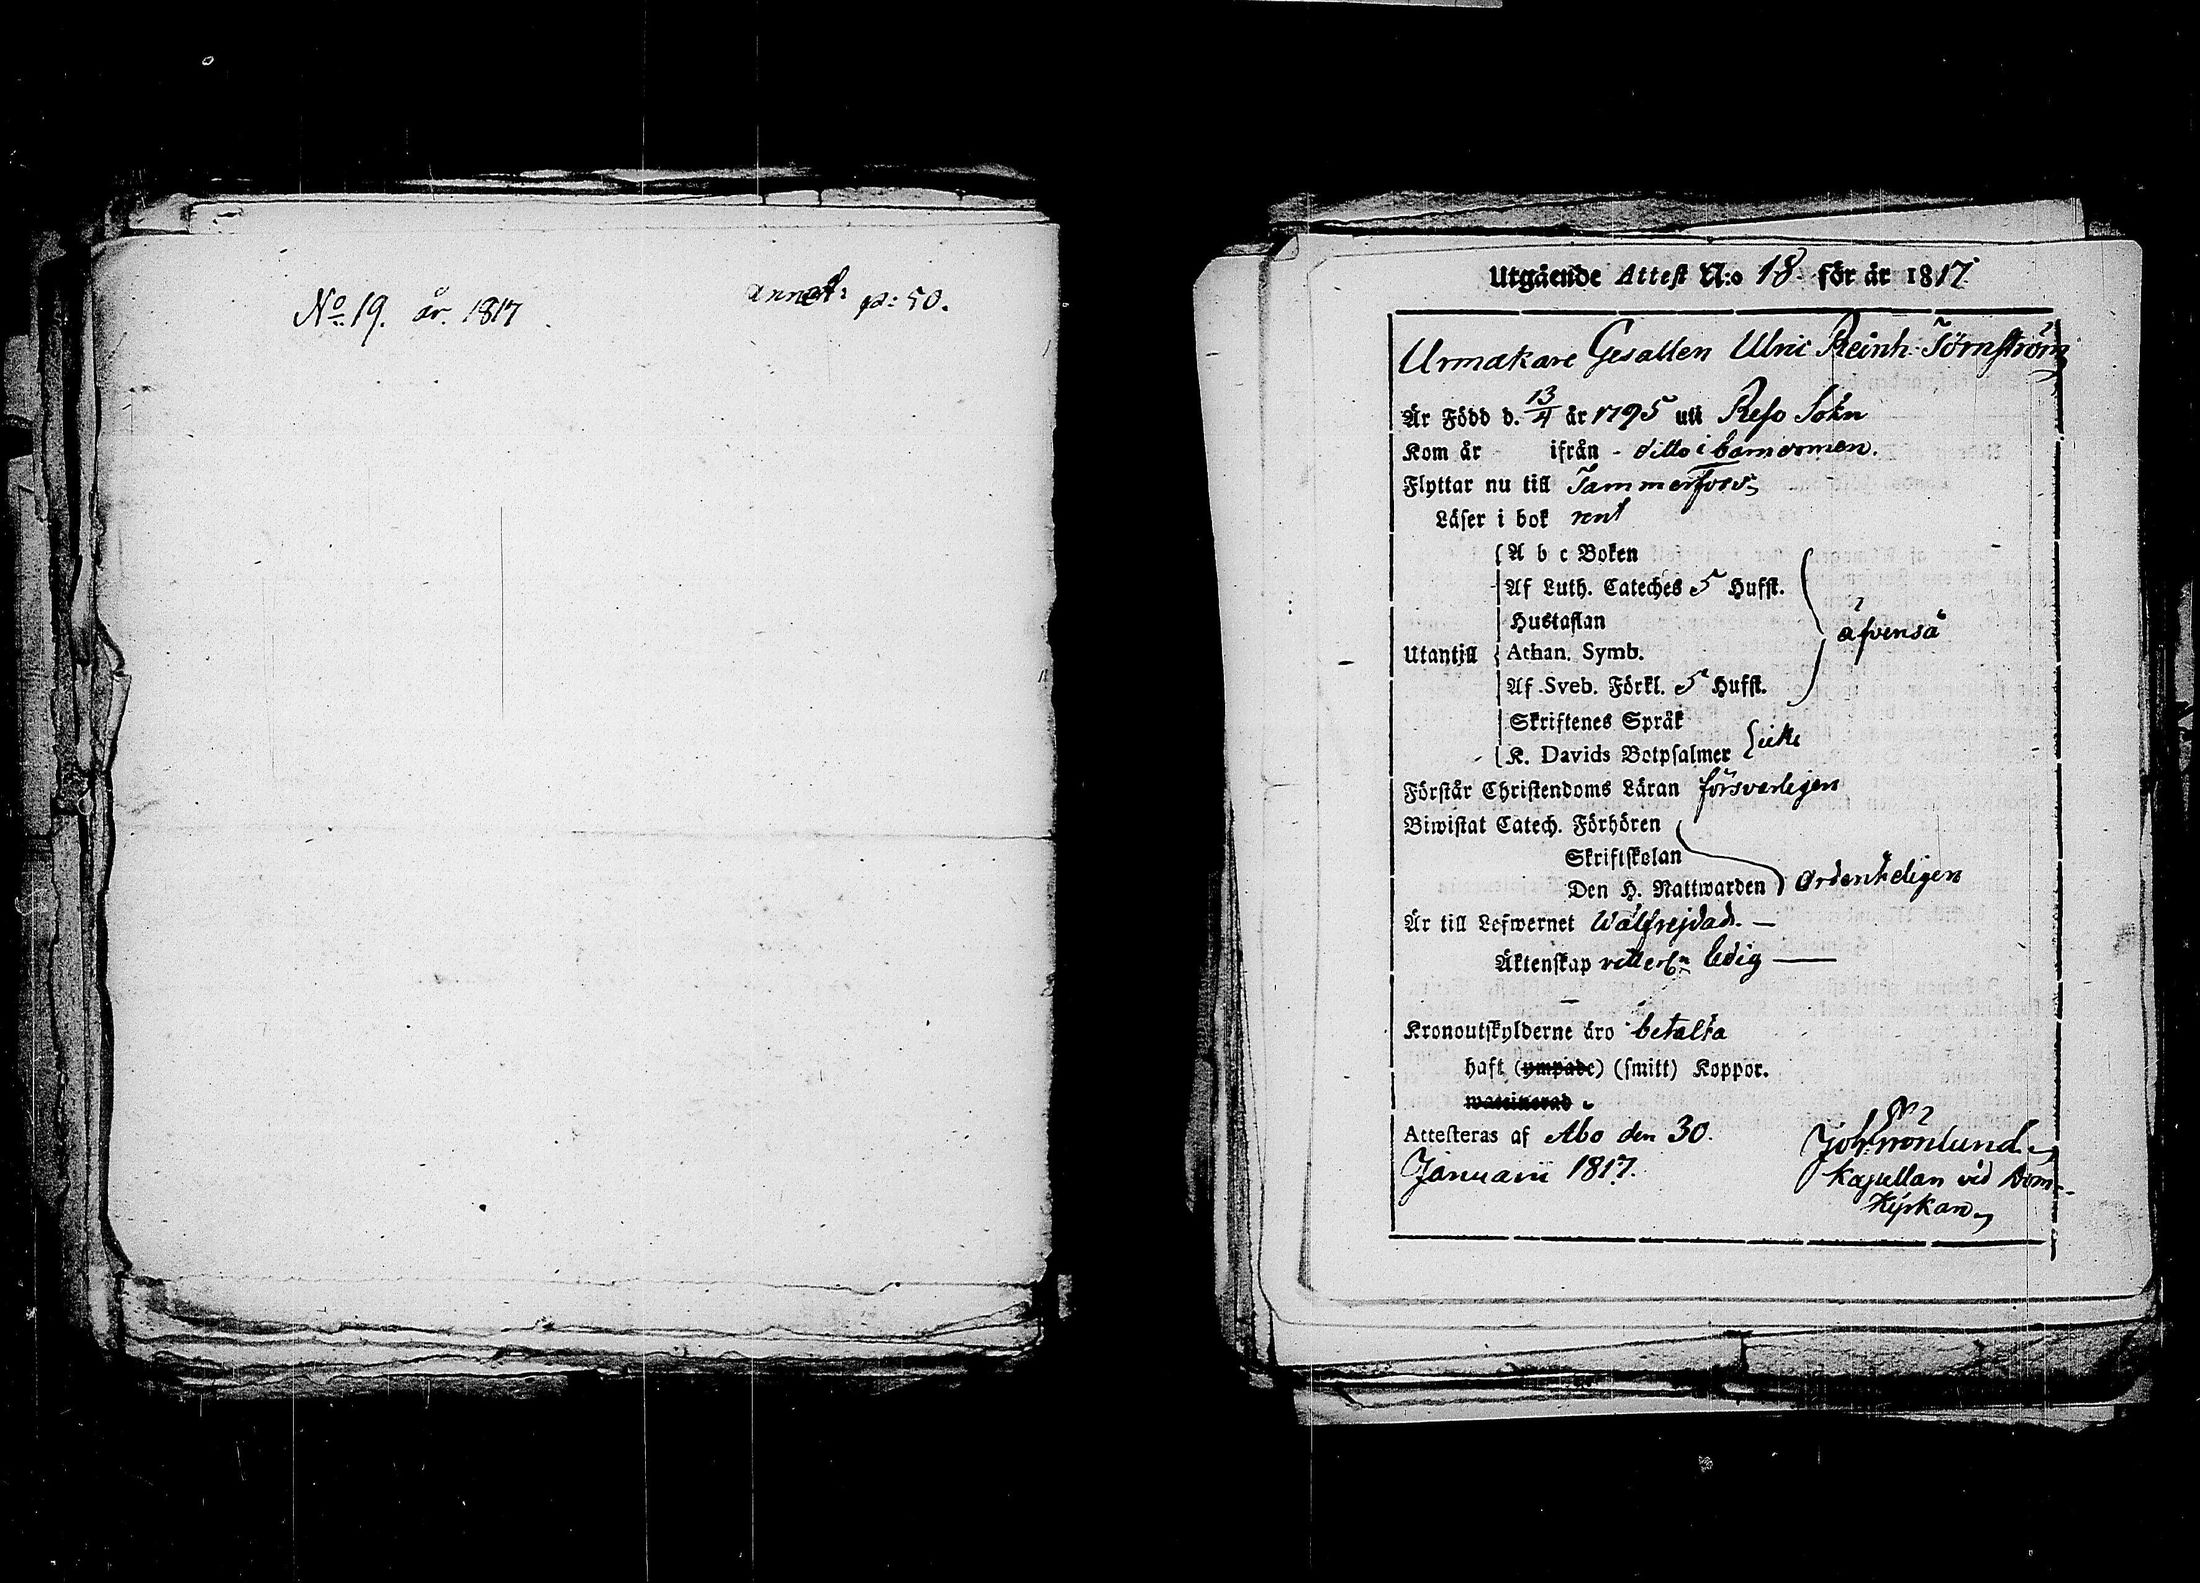 No 19. år. 1817
annot: p: 50.
Utgående Attest N:o 18 för år 1817.
Urmakare Gesällen Ulric Reinh. Törnström
Är Född d. 13/4 år 1795 uti Reso Sokn
Kom år - ifrån - ditto i barndomen.
Flyttar nu till Tammerfors
Läser i bok rent
A b c Boken
Af Luth. Cateches 5 Hufst.
Hustaflan
äfvenså
Utantill Athan. Symb.
Af Sveb. Förkl. 5 Hufst.
Skriftenes Språk
K. Davids Botpsalmer icke
Förstår Christendoms Läran försvarligen
Biwistat Catech. Förhören
Skriftskolan
Den H. Nattwarden ordenteligen
Är till Lefwernet Wälfrejdad. —
Äktenskap veterl:n ledig —
Kronoutskylderne äro betalta
haft (ympade) (smitt) Koppor.
waccinerad
Attesteras af Åbo den 30.
Januarii 1817.
Joh. Grönlund
Kapellan vid Dom-
Kyrkan